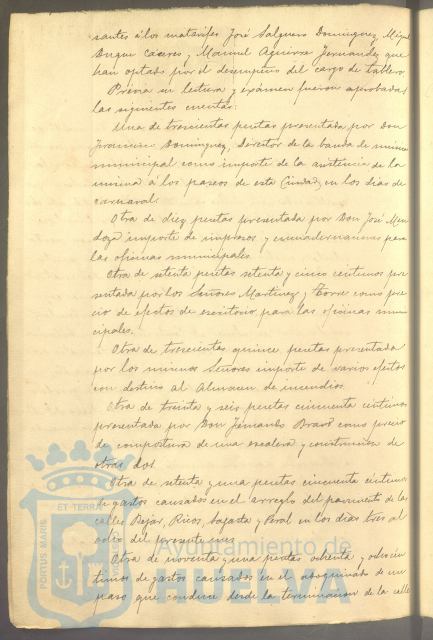 santes á los matarifes José Salguero Dominguez, Miguel
Duque Cáceres, y Manuel Aguirre Fernandez que
han optado por el desempeño del cargo de tablero.
Prévia su lectura y exámen fueron aprobadas
las siguientes cuentas:
Una de trescientas pesetas presentada por Don
Francisco Dominguez, director de la banda de música
municipal como importe de la asistencia de la
misma á los paseos de esta Ciudad, en los dias de
carnaval.
Otra de diez pesetas presentada por Don José Men
doza importe de impresos y encuadernaciones para
las oficinas municipales.
Otra de setenta pesetas setenta y cinco centimos pre
sentada por los Señores Martinez y Torre como pre
cio de efectos de escritorio para las oficinas muni
cipales.
Otra de trescientas quince pesetas presentada
por los mismos Señores importe de varios efectos
con destino al Almacen de incendios.
Otra de treinta y seis pesetas cincuenta centimos
presentada por Don Fernando Bravo como precio
de compostura de una escalera y construccion de
otras dos.
Otra de setenta y una pesetas cincuenta centimos
de gastos causados en el arreglo del pavimento de las
calles Béjar, Rios, Sagasta y Peral en los dias tres al
ocho del presente mes.
Otra de noventa y una pesetas ochenta y ocho cen
timos de gastos causados en el adoquinado de un
paso que conduce desde la terminacion de la calle
PORTUS MARIS ET TERRAE
Ayuntamiento de
HUELVA